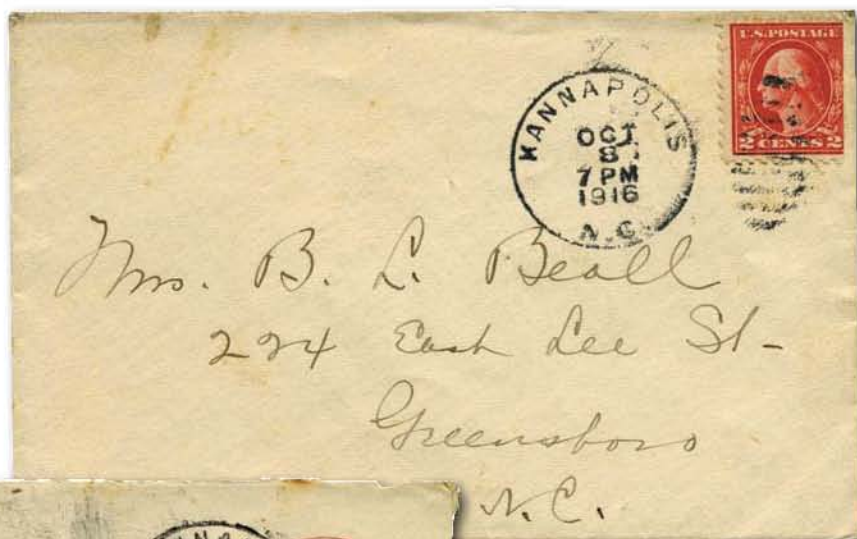 U.S. POSTAGE
2 CENTS 2
KANNAPOLIS
OCT
8
7 PM
1916
N.C.
Mrs. B. L. Beall
224 East Lee St-
Greensboro
N.C.